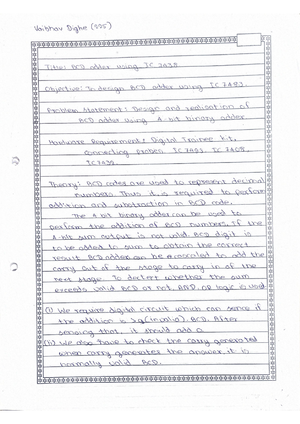 Vaibhav Dighe (995)
Title: BCD adder using IC 7483
Objective: To design BCD adder using IC 7483.
Problem Statement: Design and realisation of
BCD adder using 4-bit binary adder.
Hardware Requirement: Digital Trainer kit,
connecting probes, IC 7483, IC 7408,
IC 7432
Theory: BCD codes are used to represent decimal
numbers. Thus it is required to perform
addition and substraction in BCD code.
The 4-bit binary adder can be used to
perform the addition of BCD numbers. If the
4-bit sum output is not valid BCD digit is
to be added to sum to obtain the correct
result. BCD adder can be cascaded to add the
carry out of the stage to carry in of the
next stage. To dectect whether the sum
exceeds valid BCD or not, AND, OR logic is used
(i) We require digital circuit which can sense if
the addition is >9 (invalid). BCD. After
sensing that, it should add 6
(ii) We also have to check the carry generated
when carry generates the answer, it is
normally valid BCD.